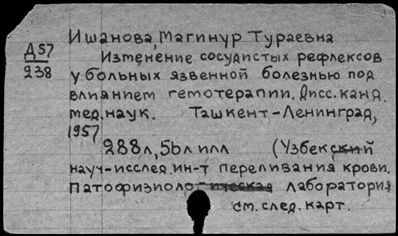 Ишанова, Магинур Тураевна
Д57
238
Изменение сосудистых рефлексов
у больных язвенной болезнью под
влиянием гемотерапии. Дисс. канд.
мед. наук. Ташкент-Ленинград,
1957
288 л, 5б л илл (Узбекский
науч-исслед. ин-т переливания крови.
Патофизиологическая лаборатория
см. след. карт.